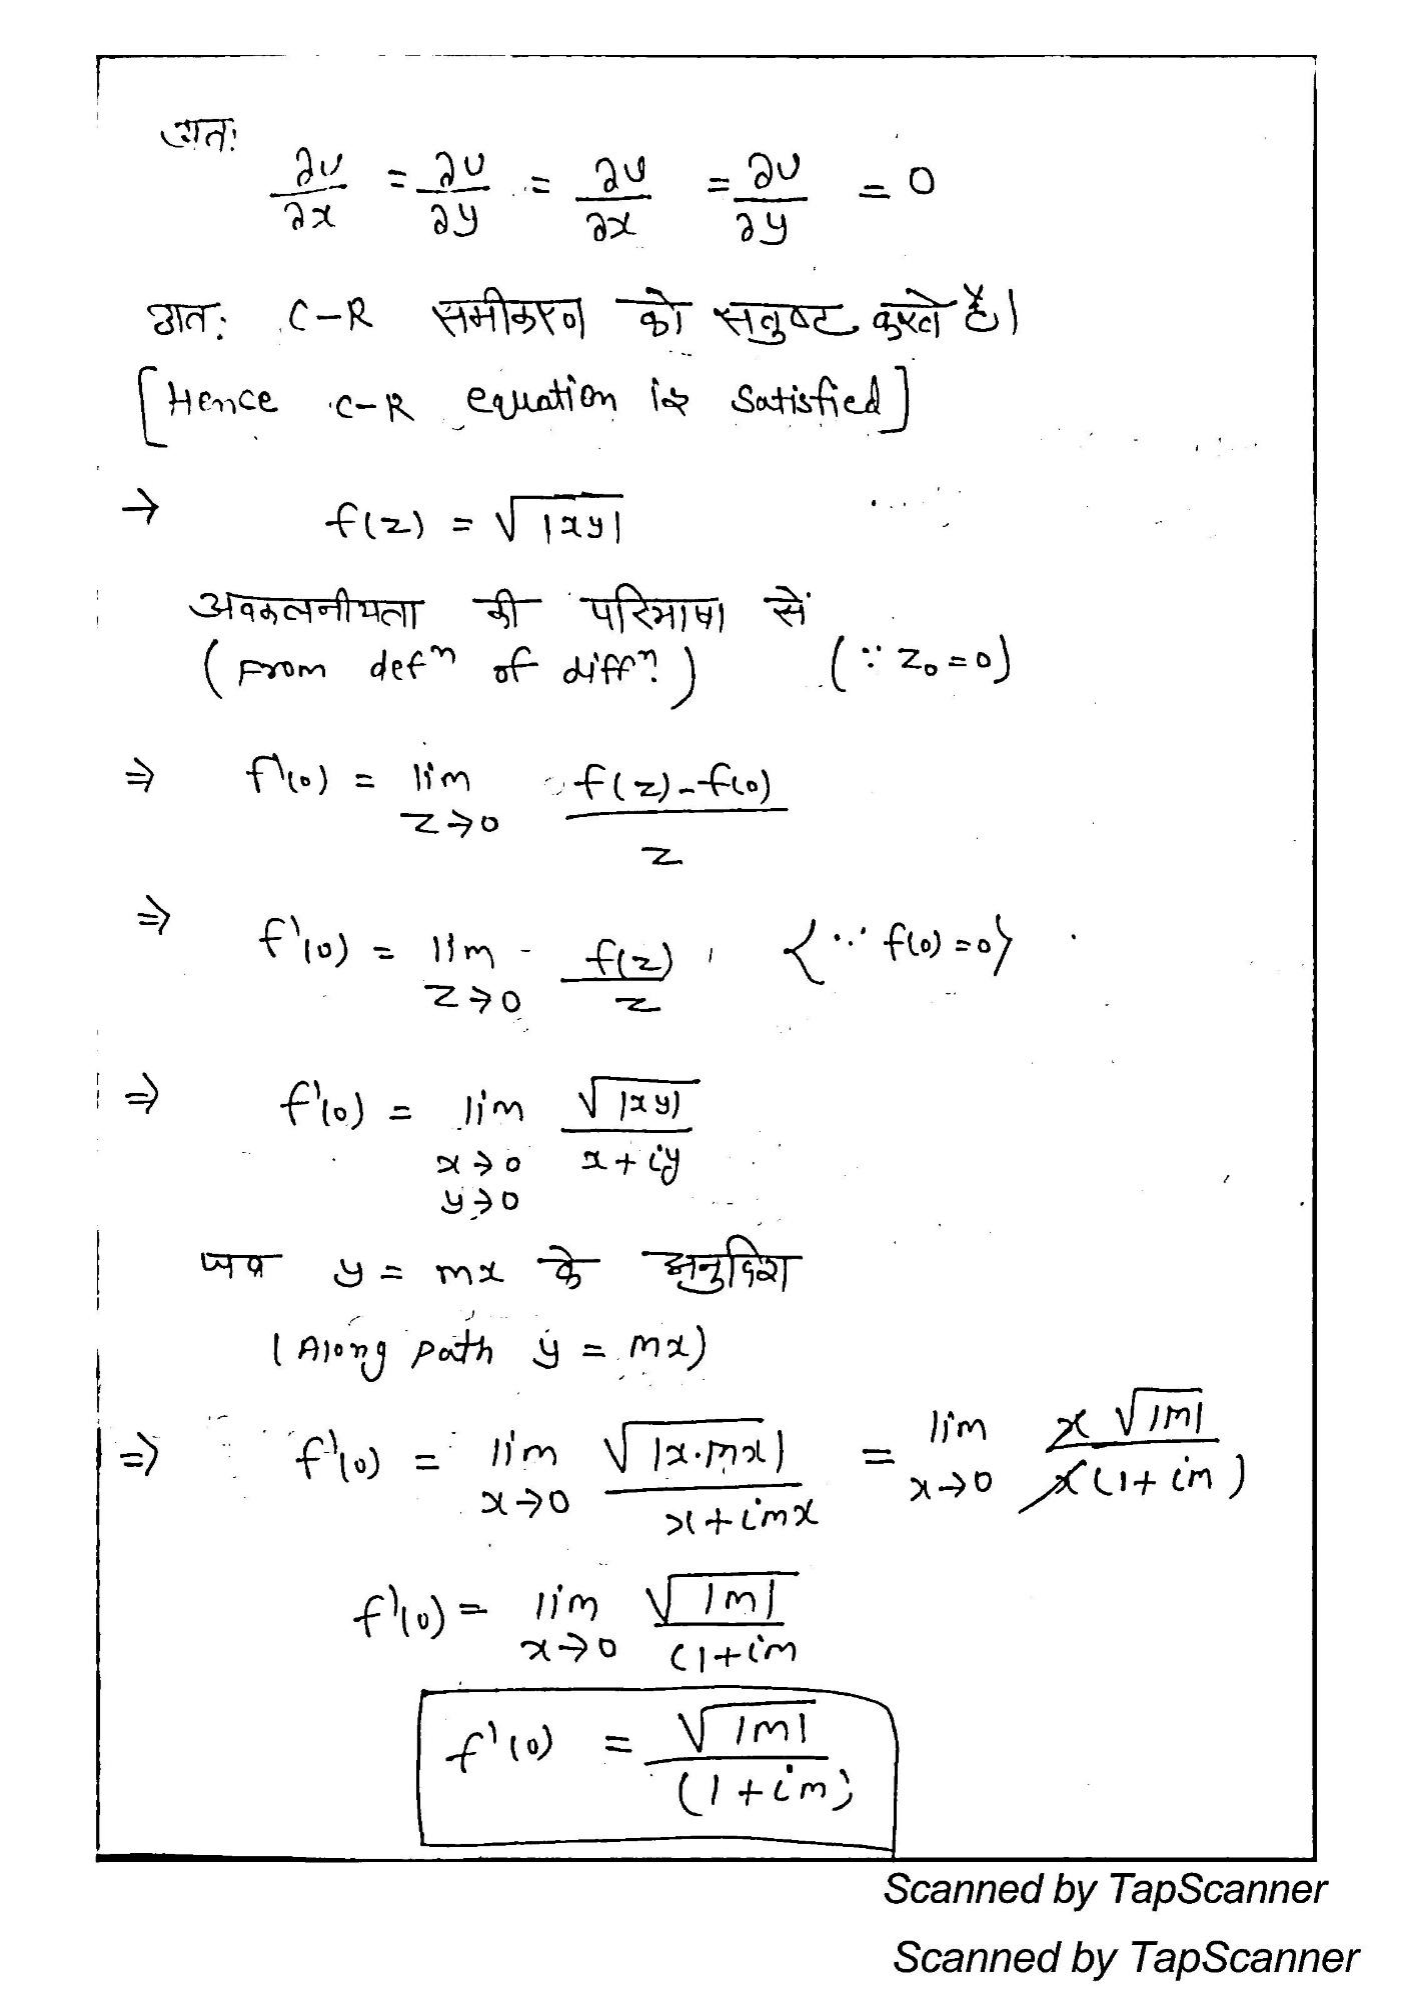 अतः
∂u/∂x = ∂u/∂y = ∂v/∂x = ∂v/∂y = 0
अतः C-R समीकरण को सतुष्ट करते है।
[Hence C-R equation is satisfied]
→ f(z) = √|xy|
अवकलनीयता की परिभाषा सें
(From defⁿ of diffⁿ.) (∵ z₀ = 0)
⇒ f'(0) = lim z→0 f(z)-f(0) / z
⇒ f'(0) = lim z→0 f(z)/z , {∵ f(0) = 0}
⇒ f'(0) = lim x→0 y→0 √|xy| / x+iy
जब y = mx के अनुदिश
(Along path y = mx)
⇒ f'(0) = lim x→0 √|x.mx| / x+imx = lim x→0 x√|m| / x(1+im)
f'(0) = lim x→0 √|m| / (1+im
f'(0) = √|m| / (1+im)
Scanned by TapScanner
Scanned by TapScanner